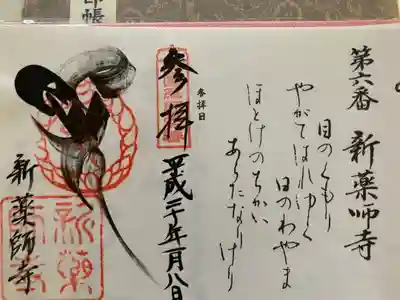 第六番 新薬師寺
目のくもり
やがてはれゆく
日のわやま
ほとけのちかい
あらたなりけり
参拝日
参拝
平成二十年一月八日
新薬師寺
印帳